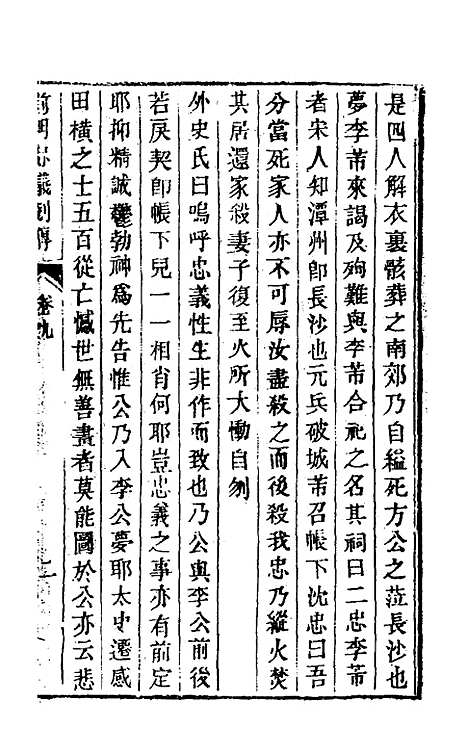 是四人解衣裹骸葬之南郊乃自縊死方公之蒞長沙也
夢李芾來謁及殉難與李芾合祀之名其祠曰二忠李芾
者宋人知潭州即長沙也元兵破城芾召帳下沈忠曰吾
分當死家人亦不可辱汝盡殺之而後殺我忠乃縱火焚
其居還家殺妻子復至火所大慟自刎
外史氏曰嗚呼忠義性生非作而致也乃公與李公前後
若戾契即帳下兒一一相肖何耶豈忠義之事亦有前定
耶抑精誠鬱勃神爲先告惟公乃入李公夢耶太史遷感
田橫之士五百從亡憾世無善畫者莫能圖於公亦云悲
前明忠義列傳
卷九